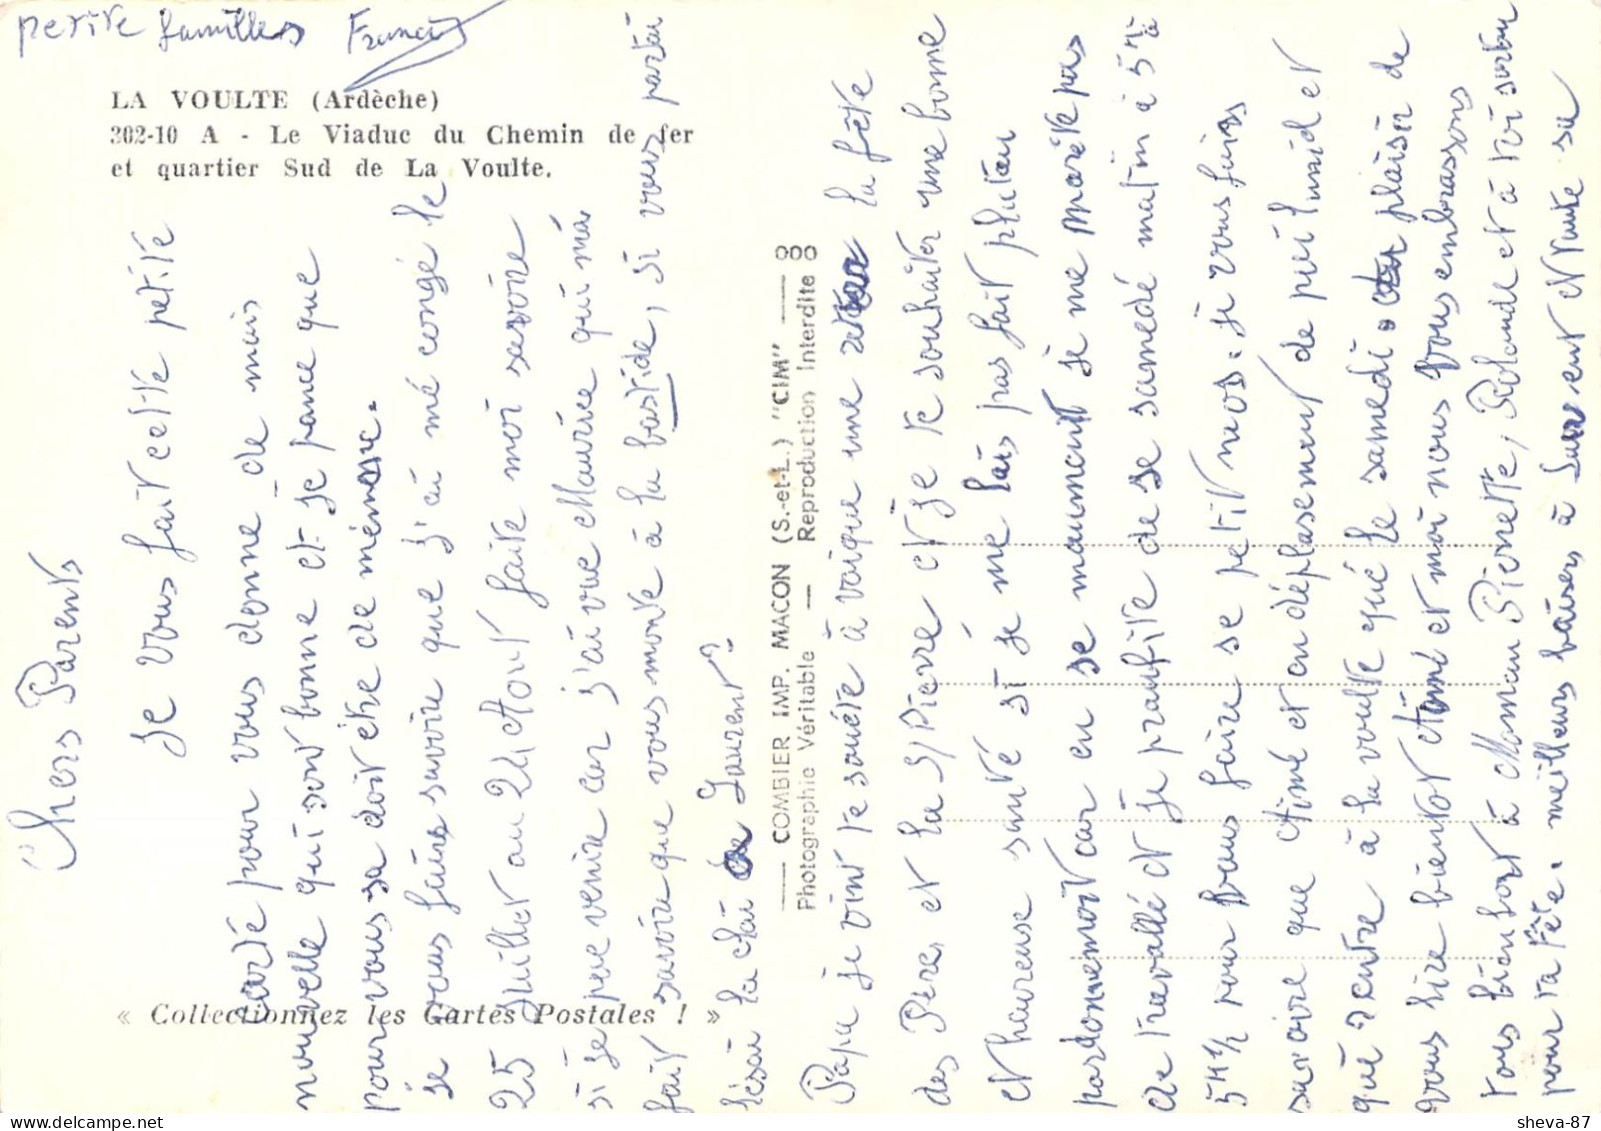 petite familles Francis
LA VOULTE (Ardèche)
302-10 A - Le Viaduc du Chemin de fer
et quartier Sud de La Voulte.
Chers Parents
Je vous fait cette petite
carté pour vous donne de mais
nouvelle qui sont bonne et je pance que
pour vous sa doit étre de mémme.
je vous fairs savoire que j'ai mé congé le
25 Juillet au 21 Aout faite moi savoire
si je peue venire car j'ai vue Maurice qui má
fait savoire que vous monte à la bastide, si vous partai
lésai la clai Laurent?
« Collectionnez les Cartes Postales ! »
COMBIER IMP. MACON (S.-et-L.) "CIM"
Photographie Véritable — Reproduction Interdite
Papa je vint te souété à voique une la fête
des Pères et la St Pierre et je te souhaiter une bonne
et haureuse santé si je me lais pas fait plutau
pardonnemoit car en se maumemt je me maréte pas
de travallé et je praufite de se samedé matin à 5h
5h½ pour vous faire se petit mos. je vous fairs
savoire que Aimé et en déplasement de puit lunid et
qui rentre à la voulte qué le samedi. plaisir de
vous lire bientot Aimé et moi nous vous embrassons
tous bien fort à Maman Pierrette, Rolande et à toi
pour ta Fête. meilleurs baisers à et toute sa
sheva-87